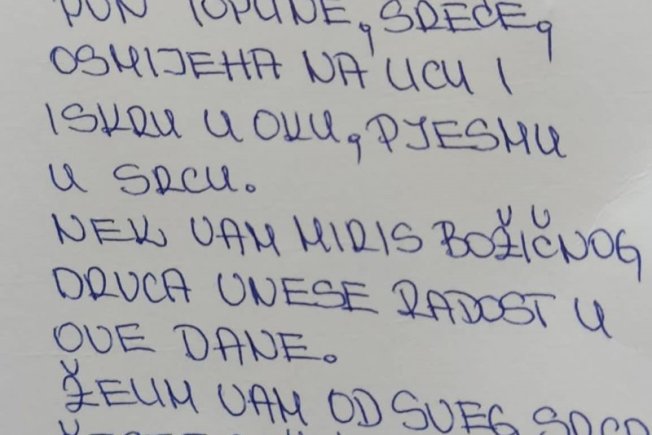 PUN TOPLINE, SREĆE,
OSMIJEHA NA LICU I
ISKRU U OKU, PJESMU
U SRCU.
NEK VAM MIRIS BOŽIČNOG
DRVCA UNESE RADOST U
OVE DANE.
ŽELIM VAM OD SVEG SRCA